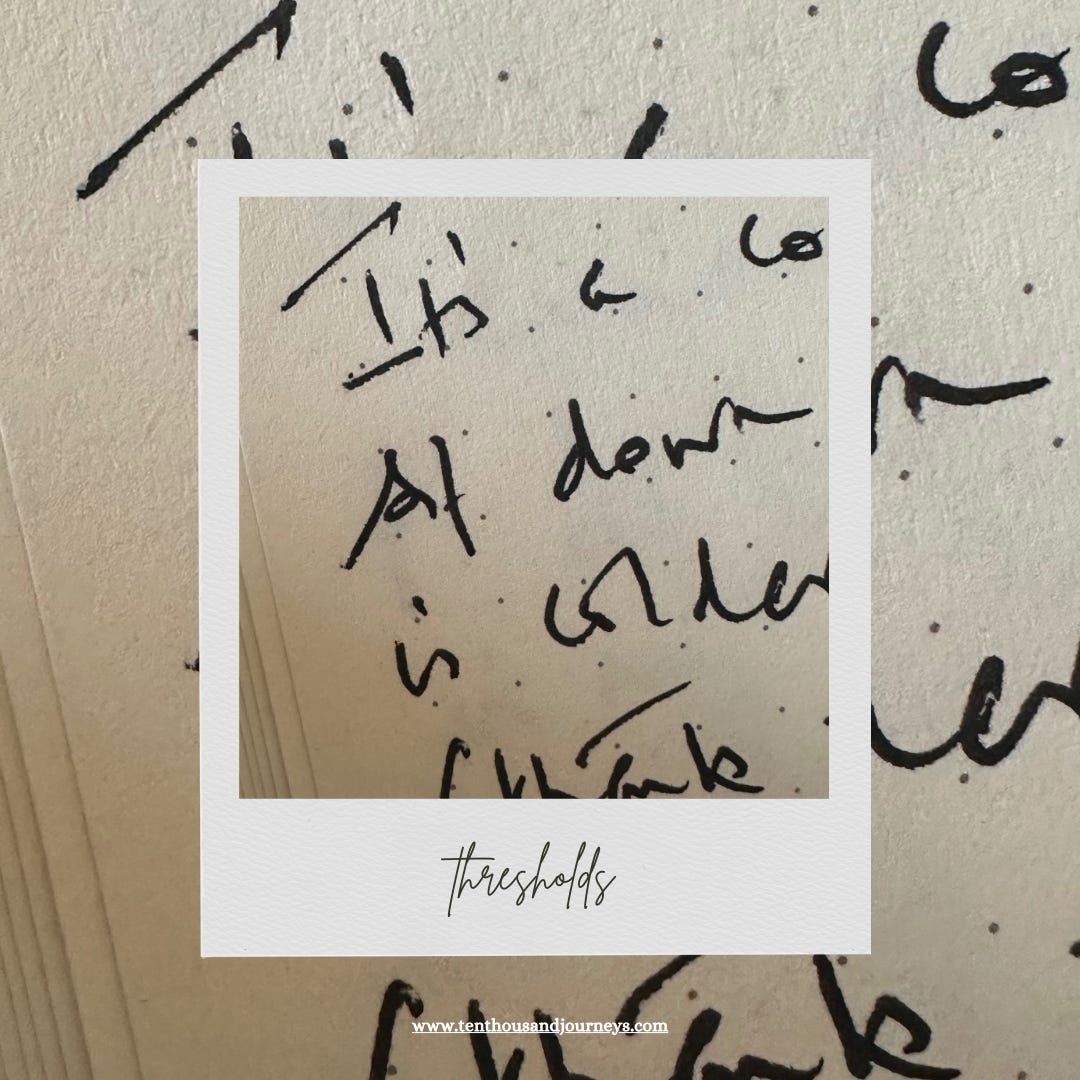 It's a co
At dawn
is colder
thank
thresholds
www.tenthousandjourneys.com